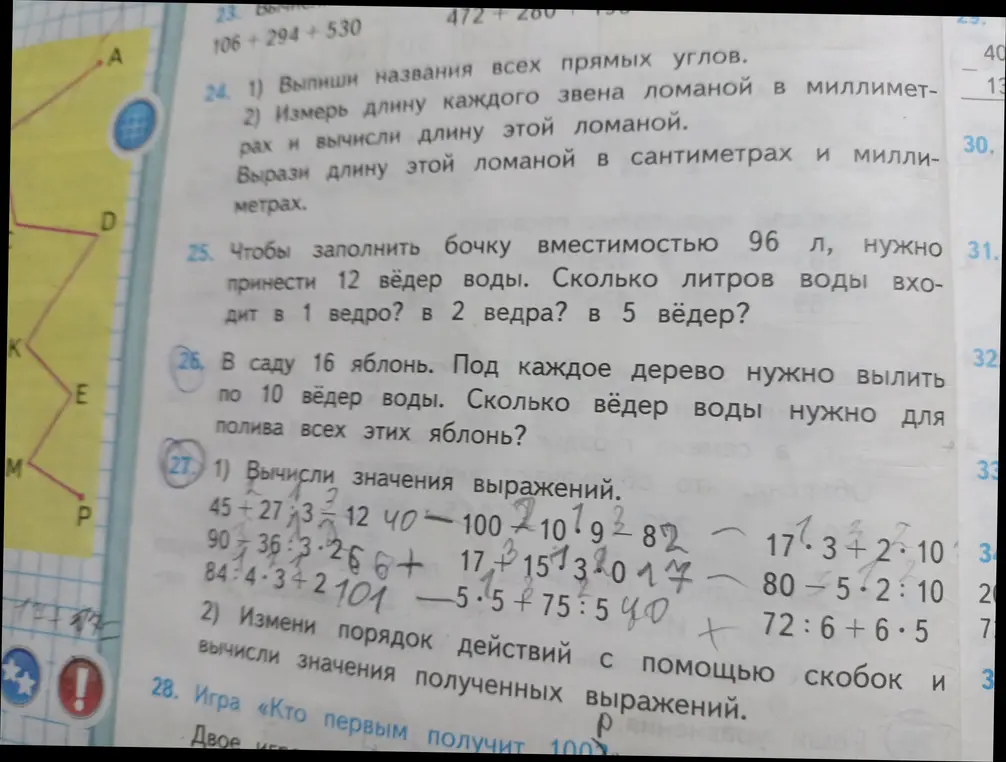 106 + 294 + 530
24. 1) Выпиши названия всех прямых углов.
2) Измерь длину каждого звена ломаной в миллимет-
рах и вычисли длину этой ломаной.
Вырази длину этой ломаной в сантиметрах и милли-
метрах.
25. Чтобы заполнить бочку вместимостью 96 л, нужно
принести 12 вёдер воды. Сколько литров воды вхо-
дит в 1 ведро? в 2 ведра? в 5 вёдер?
26. В саду 16 яблонь. Под каждое дерево нужно вылить
по 10 вёдер воды. Сколько вёдер воды нужно для
полива всех этих яблонь?
27. 1) Вычисли значения выражений.
45 + 27 : 3 – 12 40 – 100 – 10 · 9 – 8 2 – 17 · 3 + 2 · 10
90 – 36 : 3 · 2 66 + 17 + 15 : 3 · 0 17 – 80 – 5 · 2 : 10
84 : 4 · 3 + 2 101 – 5 · 5 + 75 : 5 40 + 72 : 6 + 6 · 5
2) Измени порядок действий с помощью скобок и
вычисли значения полученных выражений.
28. Игра «Кто первым получит 100?
Двое
A
D
K
E
M
P
29.
40
– 13
30.
31.
32
33
3
20
7
3